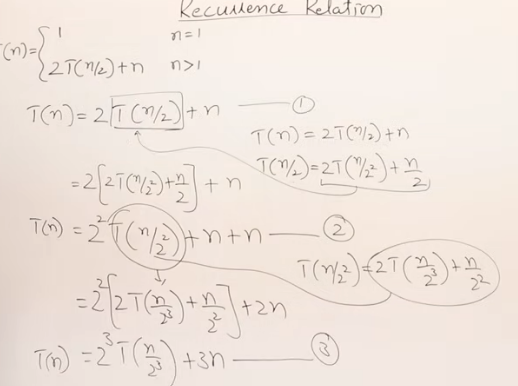 Recurrence Relation
T(n) = { 1 n=1
2T(n/2)+n n>1
T(n) = 2 T(n/2) + n — ①
T(n) = 2T(n/2)+n
T(n/2) = 2T(n/2²)+n/2
= 2[2T(n/2²)+n/2] + n
T(n) = 2² T(n/2²) + n + n — ②
T(n/2²) = 2T(n/2³)+n/2²
= 2²[2T(n/2³)+n/2²] + 2n
T(n) = 2³ T(n/2³) + 3n — ③